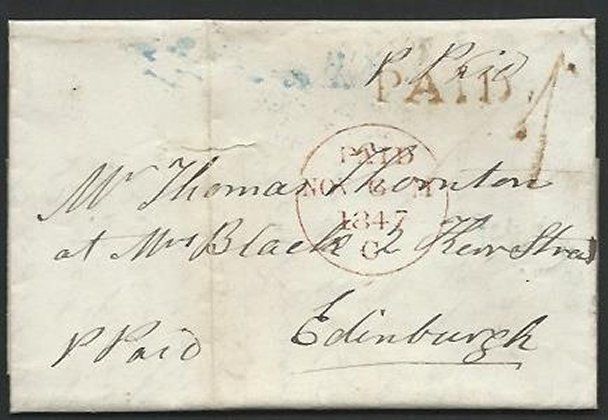 P Paid
PAID 1
PAID
NOV 6 M
1847
Mr Thomas Thornton
at Mrs Black 2 Kerr Street
Edinburgh
P Paid